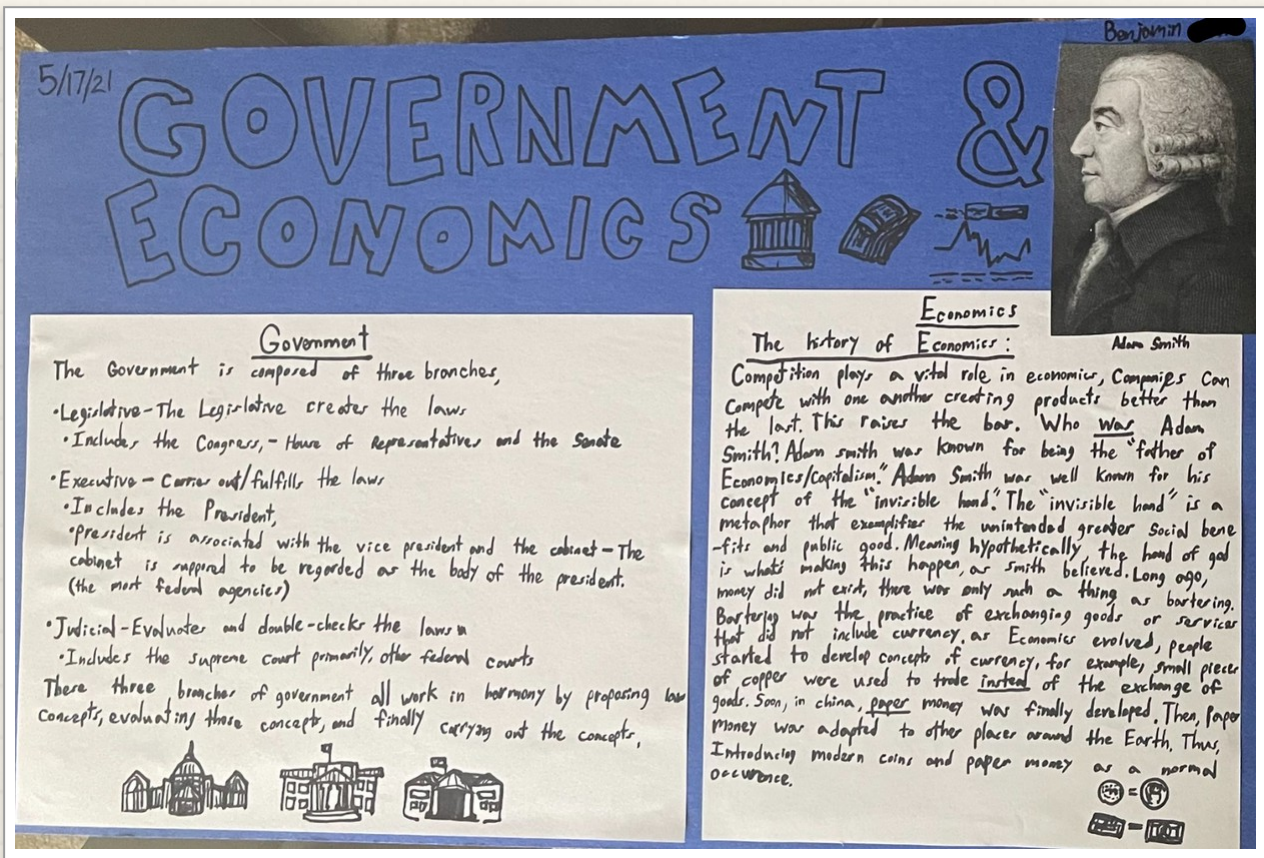 Benjamin
5/17/21
GOVERNMENT &
ECONOMICS
Government
The Government is composed of three branches,
•Legislative-The Legislative creates the laws
•Includes the Congress,- House of Representatives and the Senate
•Executive - Carries out/fulfills the laws
•Includes the President,
•president is associated with the vice president and the cabinet-The
cabinet is supposed to be regarded as the body of the president.
(the most federal agencies)
•Judicial-Evaluates and double-checks the laws
•Includes the supreme court primarily, other federal courts
These three branches of government all work in harmony by proposing law
concepts, evaluating those concepts, and finally carrying out the concepts,
Economics
The history of Economics:
Adam Smith
Competition plays a vital role in economics, Companies Can
Compete with one another creating products better than
the last. This raises the bar. Who Was Adam
Smith? Adam smith was known for being the "father of
Economics/Capitalism." Adam Smith was well known for his
concept of the "invisible hand". The "invisible hand" is a
metaphor that exemplifies the unintended greater Social bene
-fits and public good. Meaning hypothetically, the hand of god
is what's making this happen, as smith believed. Long ago,
money did not exist, there was only such a thing as bartering.
Bartering was the practice of exchanging goods or services
that did not include currency. as Economics evolved, people
started to develop concepts of currency, for example, small pieces
of copper were used to trade instead of the exchange of
goods. Soon, in china, paper money was finally developed. Then, Paper
money was adapted to other places around the Earth, Thus,
Introducing modern coins and paper money as a normal
occurence.